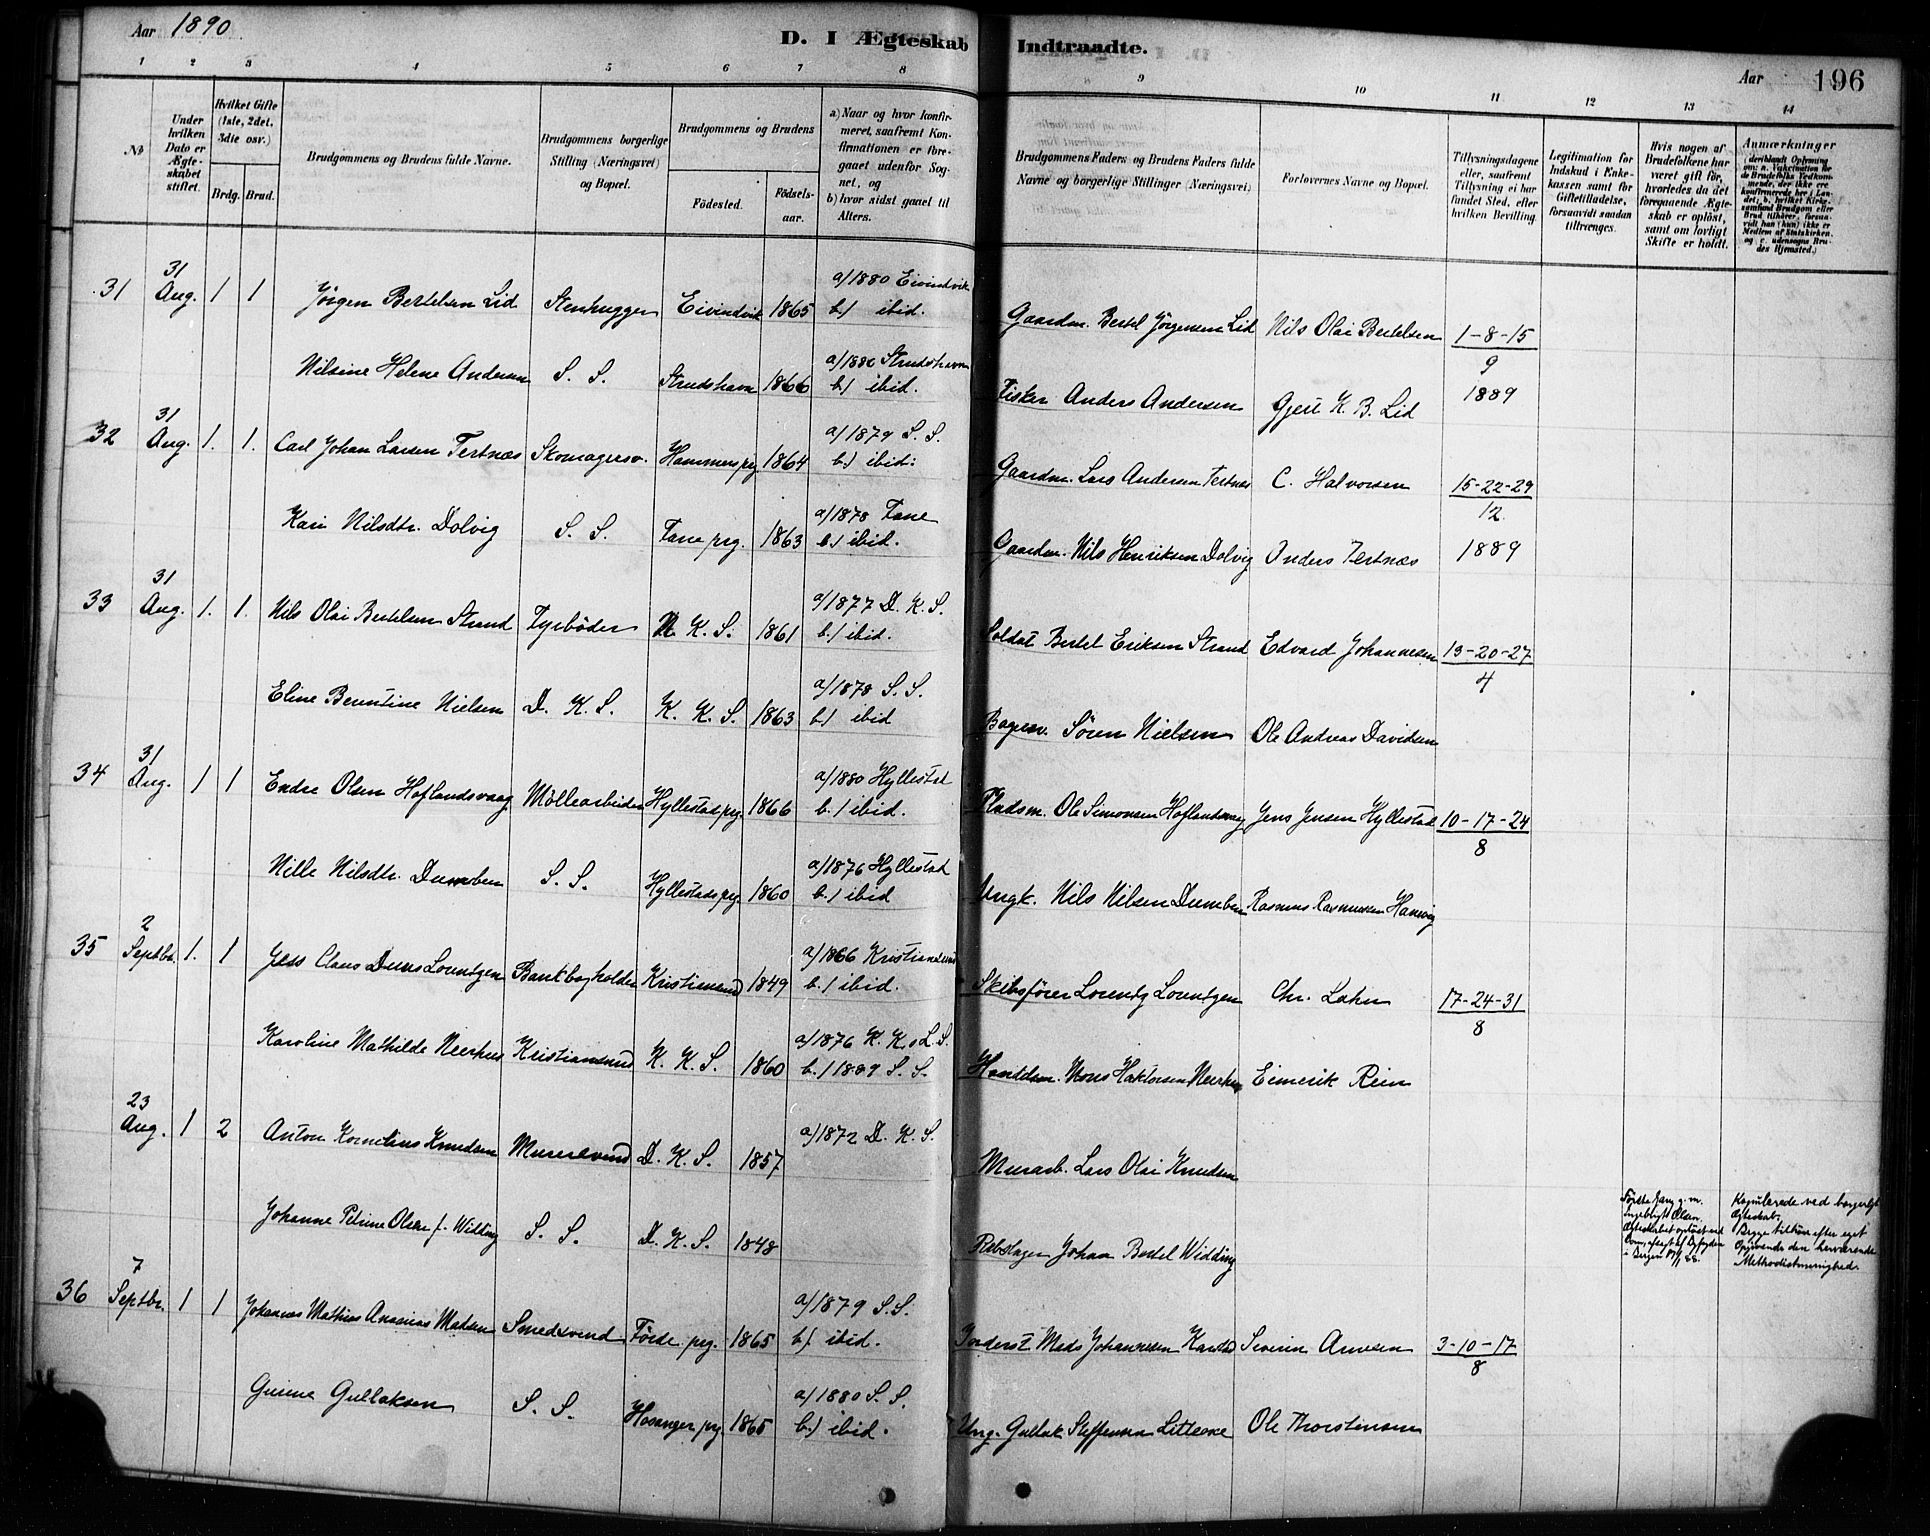 Aar 1890
D. I Ægteskab Indtraadte.
Aar 196
1 2 3 4 5 6 7 8 9 10 11 12 13 14
No
Under hvilken Dato er Ægteskabet stiftet.
Hvilket Gifte (1ste, 2det, 3die osv.)
Brdg. Brud.
Brudgommens og Brudens fulde Navne.
Brudgommens borgerlige Stilling (Næringsvei) og Bopæl.
Brudgommens og Brudens
Fødested. Fødselsaar.
a) Naar og hvor konfirmeret, saafremt Konfirmationen er foregaaet udenfor Sognet, og
b) hvor sidst gaaet til Alters.
Brudgommens Faders og Brudens Faders fulde Navne og borgerlige Stillinger (Næringsvei)
Forlovernes Navne og Bopæl.
Tillysningsdagene eller, saafremt Tillysning ei har fundet Sted, efter hvilken Bevilling.
Legitimation for Indskud i Enkekassen samt for Giftetilladelse, forsaavidt saadan tiltrænges.
Hvis nogen af Brudefolkene har været gift før, hvorledes da det foregaaende Ægteskab er opløst, samt om lovligt Skifte er holdt.
Anmærkninger
31 31 Aug. 1 1 Jörgen Bertelsen Lid Stenhugger Eivindvik 1865 a/1880 Eivindvik b./ ibid. Gaardm. Bertel Jörgensen Lid Nils Olai Bertelsen 1-8-15
9
Nilsine Helene Andersen S. S. Strudshavn 1866 a/1880 Strudshavn b./ ibid. Fisker Anders Andersen Gjert K. B. Lid 1889
32 31 Aug. 1. 1. Carl Johan Larsen Tertnæs Skomagersv. Hammers prg. 1864 a/1879 S. S. b./ ibid. Gaardm. Lars Andersen Tertnæs C. Halvorsen 15-22-29
12.
Kari Nilsdtr. Dolvig S. S. Fane prg. 1863 a/1878 Fane b./ ibid. Gaardm. Nils Henriksen Dolvig Anders Tertnæs 1889
33 31 Aug. 1. 1. Nils Olai Bertelsen Strand Fyrböder N. K. S. 1861 a/1877 D. K. S. b./ ibid. Soldat Bertel Eriksen Strand Edvard Johannesen 13-20-27
4
Eline Berentine Nielsen D. K. S. K. K. S. 1863 a/1878 S. S. b./ ibid Bagersv. Sören Nielsen Ole Andreas Davidsen
34 31 Aug. 1 1 Endre Olsen Hoflandsvaag Möllearbeider Hyllestad prg. 1866 a/1880 Hyllestad b./ ibid. Pladsm. Ole Simonsen Hoflandsvaag Jens Jensen Hyllestad 10-17-24
8
Nille Nilsdtr. S. S. Hyllestad prg. 1860 a/1876 Hyllestad b./ ibid Ungk. Nils Nilsen Rasmus Rasmussen
35 2 Septbr. 1. 1 Jess Claus Lorentzen Bankbogholder Kristiansund 1849 a/1866 Kristiansund b./ ibid. Skibsförer Lorentz Lorentzen Chr. Lahn 17-24-31
8
Karoline Mathilde Neerhus Kristiansund K. K. S. 1860 a/1876 K. K. L. S. b./1889 S. S. Handelsm. Mons Neerhus Eimerik Rein
23 Aug. 1 2 Anton Kornelius Knudsen Murersvend D. K. S. 1857 a/1872 D. K. S. Murarb. Lars Olai Knudsen
Johanne Petrine Olsen f. Widding S. S. D. K. S. 1848 Rebslager Johan Bertel Widding
Förste Gang g. m. Ingebrigt Olsen. Ægteskabet oplöst ved i Bergen
Kopulerede ved borgerligt Ægteskab. Begge tilhöre efter eget Opgivende den herværende Methodistmenighed.
36 7 Septbr. 1 1 Johannes Mathias Ananias Madsen Smedesvend Förde prg. 1865 a/1879 S. S. b/. ibid. Inderst Mads Johannesen Severin Arnesen 3-10-17
8
Gurine Gullaksen S. S. Hosanger prg. 1865 a/1880 S. S. b./ ibid. Ung. Gullak Steffensen Ole Thorstensen